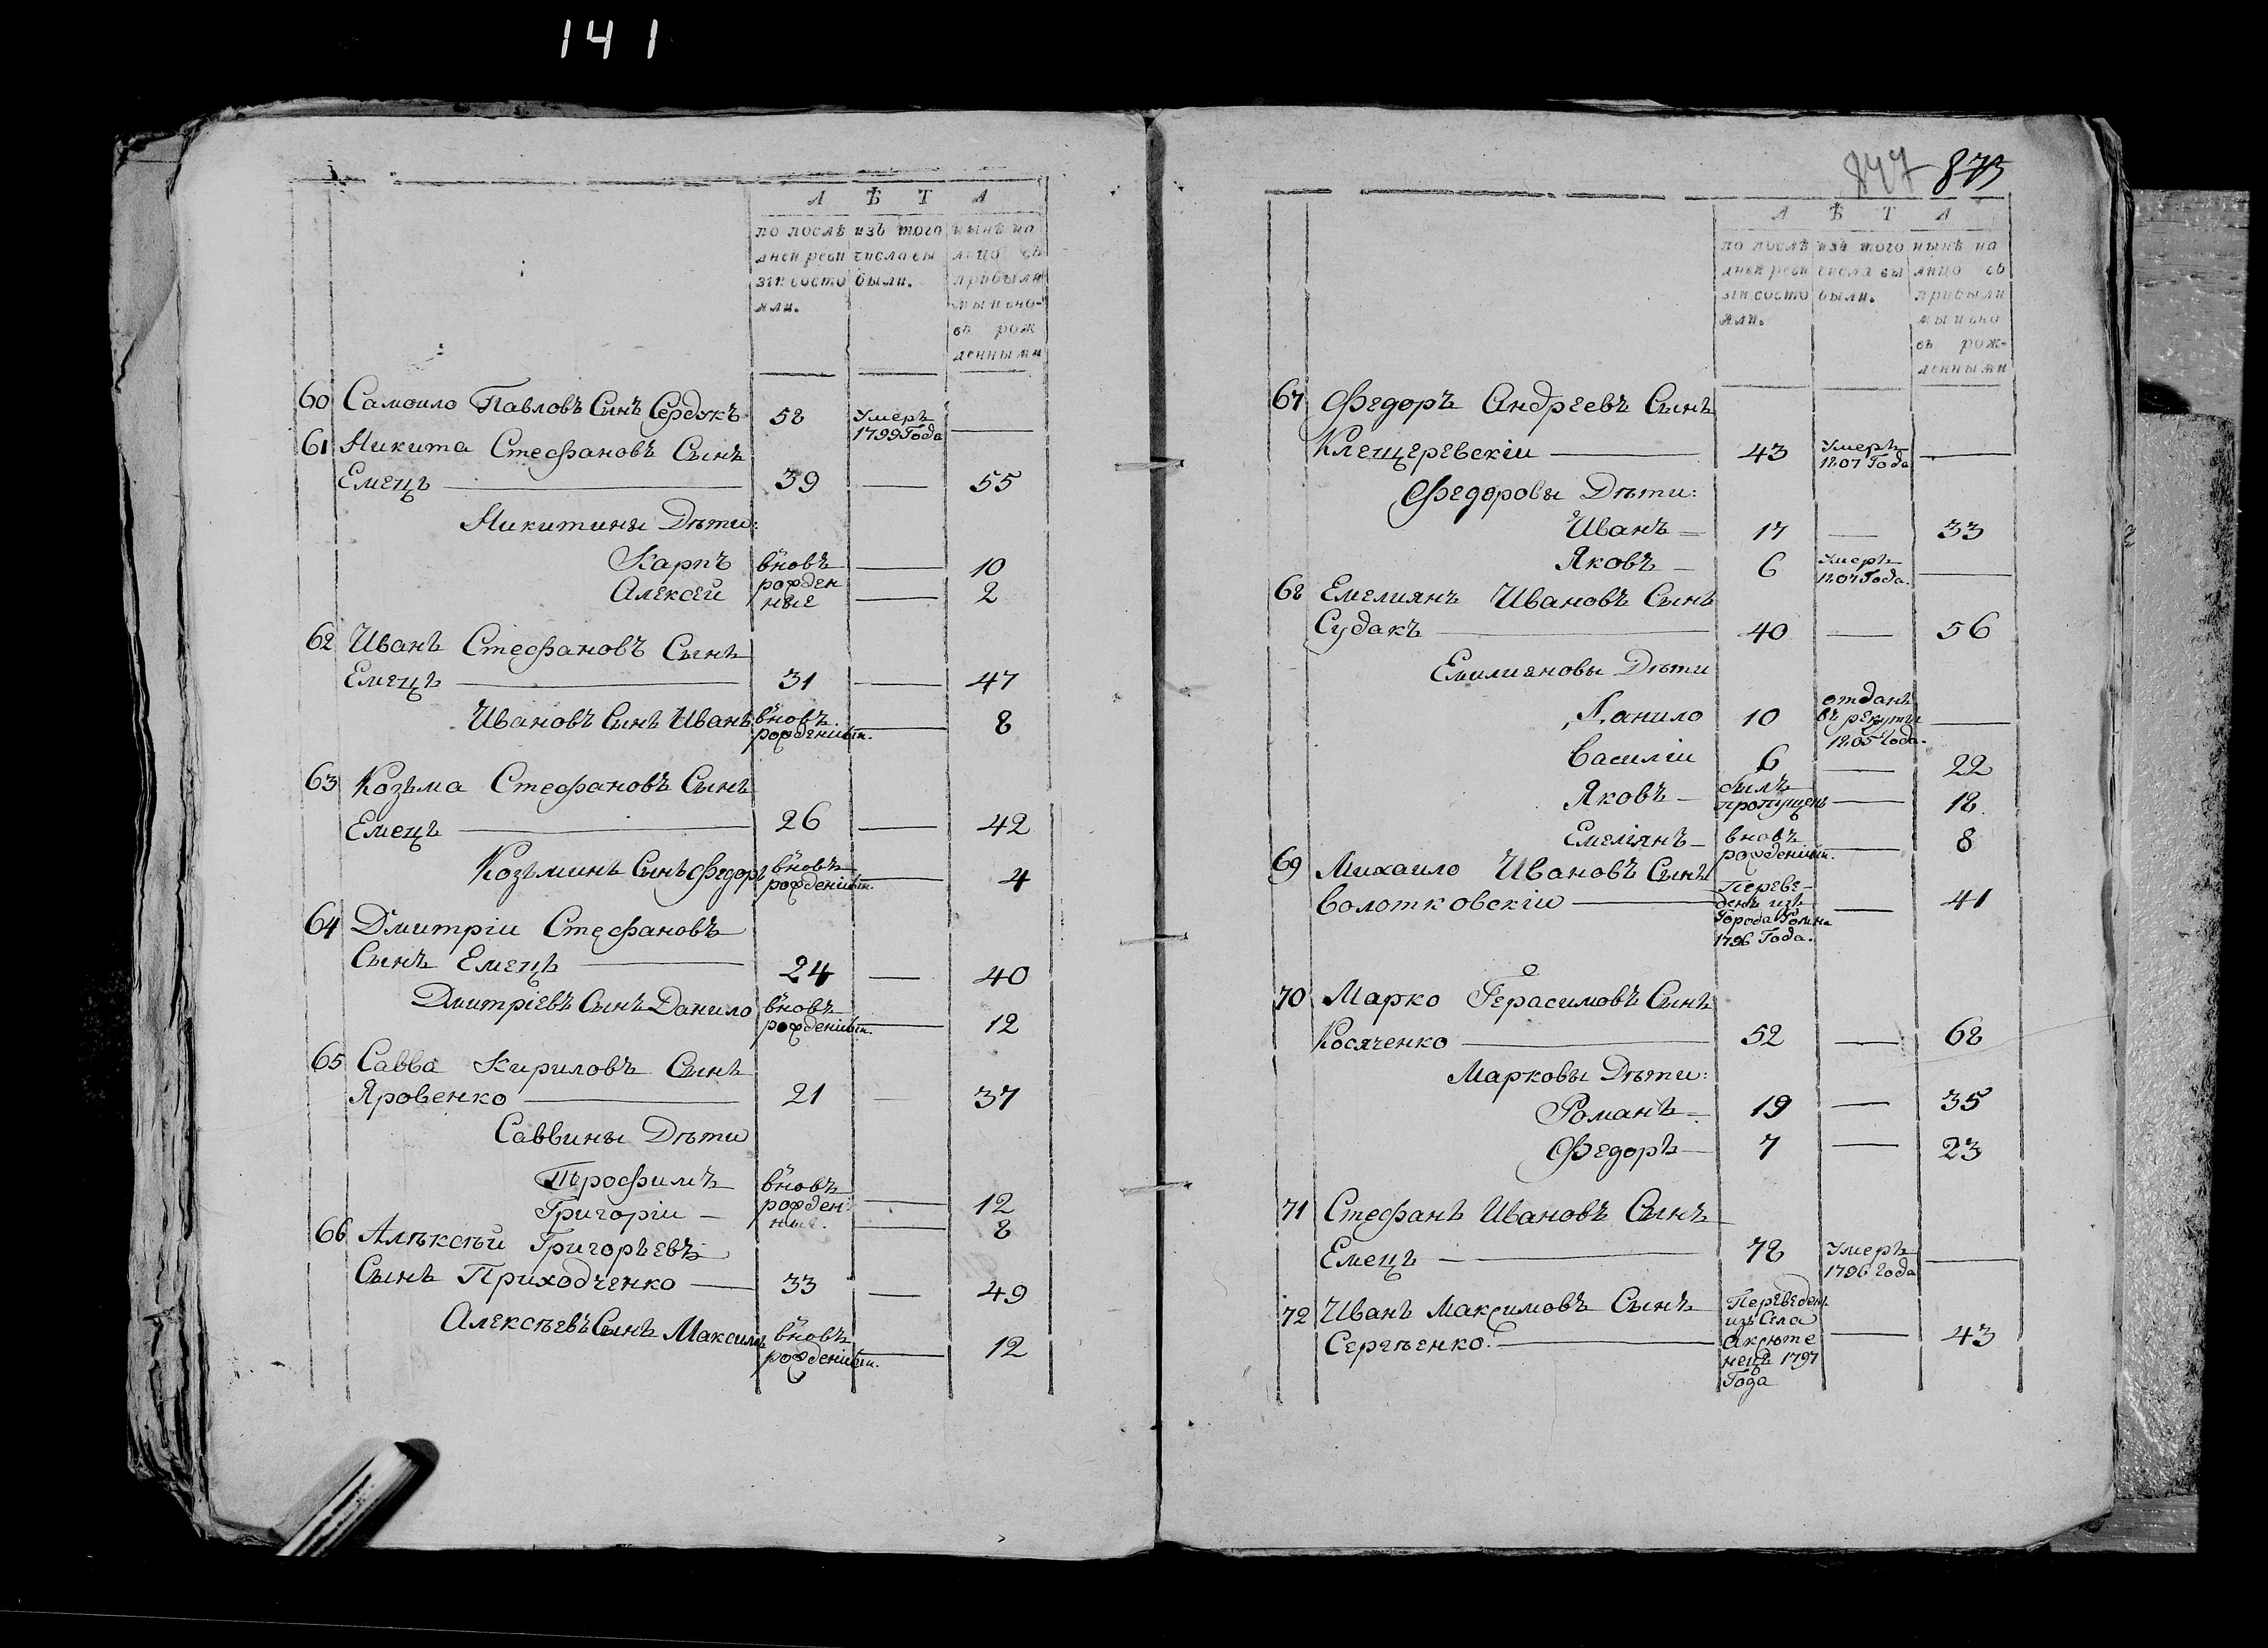 141
Л Ѣ Т А
по послѣ изъ того нынѣ на
дней реви числа вы лицо съ
зіи состо были. прибыли
яли. мы и вно-
вь рож
денными
60 Самоило Павловъ Сынъ Сердюкъ 58 Умеръ 1799 Года —
61 Никита Стефановъ Сынъ
Емецъ — 39 — 55
Никитины Дѣти:
Карпъ вновъ — 10
Алексей рожден ные — 2
62 Иванъ Стефановъ Сынъ
Емецъ — 31 — 47
Ивановъ Сынъ Иванъ вновъ рожденный. — 8
63 Козьма Стефановъ Сынъ
Емецъ — 26 — 42
Козьминъ Сынъ Федоръ вновъ рожденный. — 4
64 Дмитріи Стефановъ
Сынъ Емецъ — 24 — 40
Дмитріевъ Сынъ Данило вновъ рожденный. — 12
65 Савва Кириловъ Сынъ
Яровенко — 21 — 37
Саввины Дѣти
Трофимъ вновъ рожден — 12
Григоріи — ные. — 8
66 Алѣксѣй Григорьевъ
Сынъ Приходченко — 33 — 49
Алексѣевъ Сынъ Максимъ вновъ рожденный. — 12
847 873
Л Ѣ Т А
по послѣ изъ того нынѣ на
дней реви числа вы лицо съ
зіи состо были. прибыли
яли. мы и вно
вь рож-
денными
67 Федоръ Андреевъ Сынъ
Клещеревскіи — 43 Умеръ 1807 Года —
Федоровы Дѣти:
Иванъ — 17 — 33
Яковъ — 6 Умеръ 1807 Года. —
68 Емелиянъ Ивановъ Сынъ
Судакъ — 40 — 56
Емилияновы Дѣти
Данило 10 отданъ въ рекруты 1805 Года. —
Василіи 6 — 22
Яковъ — былъ пропущенъ — 18
Емеліянъ — вновъ рожденный. — 8
69 Михаило Ивановъ Сынъ
Волотковскіи — Переве- денъ изъ Города Ромна 1796 Года. — 41
70 Марко Герасимовъ Сынъ
Косяченко — 52 — 68
Марковы Дѣти:
Романъ — 19 — 35
Федоръ — 7 — 23
71 Стефанъ Ивановъ Сынъ
Емецъ — 78 Умеръ 1796 Года —
72 Иванъ Максимовъ Сынъ Переведенъ изъ Села
Сергѣенко. — Аксюте нецъ 1797 Года — 43